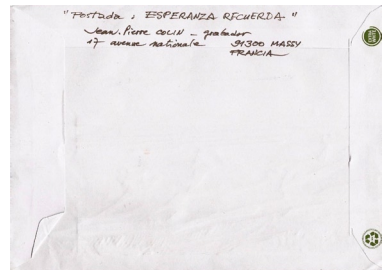 "Postada : ESPERANZA RECUERDA"
Jean-Pierre COLIN - grabador
17 avenue nationale 91300 MASSY
FRANCIA